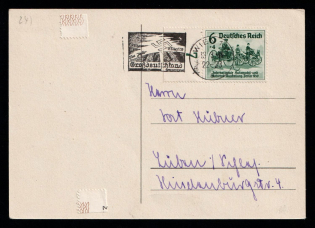 271
6 Deutsches Reich
Großdeutschland
Internationale Automobil- und
Motorrad-Ausstellung Berlin 1939
Herrn
Hübner
Lüben / Schles.
Hindenburgstr. 4
2